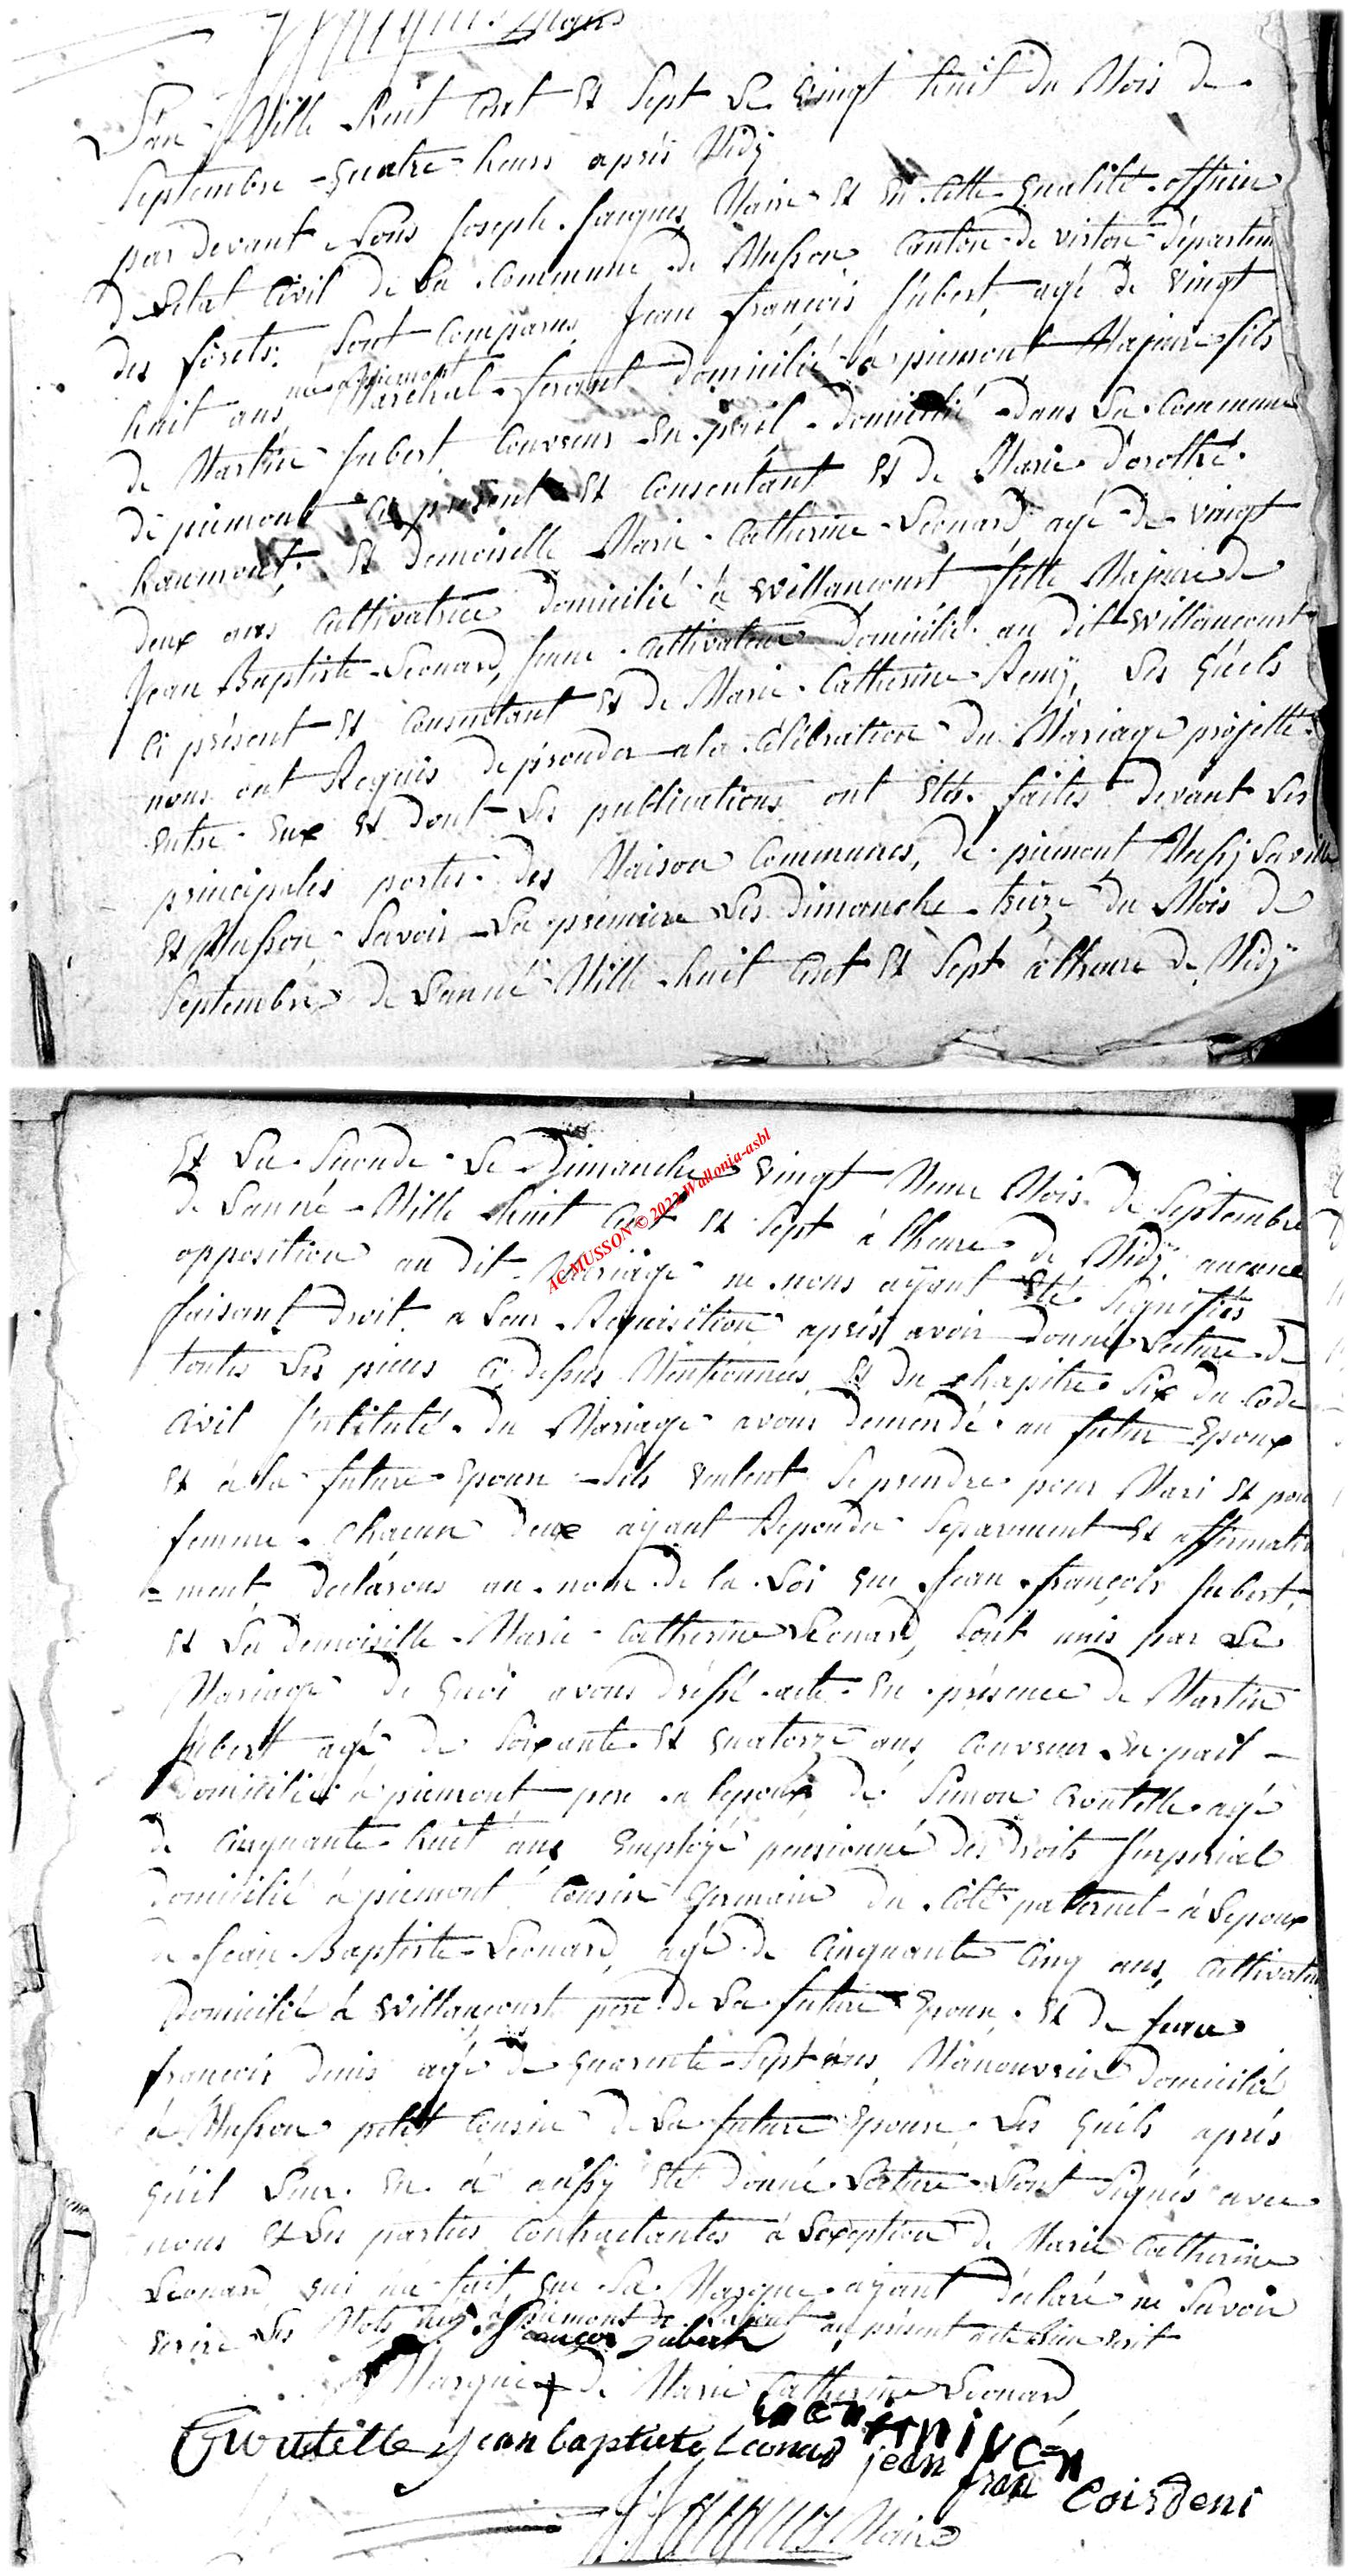 Maire
L'an Mille huit Cent Et Sept Le vingt huit du Mois de
Septembre quatre heurs après Midÿ
par devant Nous Joseph Jacques Maire Et En Cette qualité officier
d Letat Civil de La Commune de Musson Canton de virton départem
des fôrets. Sont Comparus Jean françois Jubert, agé de vingt
né a piemont
huit ans Marechal ferant domicilié à piemont Majeur fils
de Martin Jubert Couvreur En domicilié dans La Commune
de piemont Ci présent Et Consentant Et de Marie dorothé
haumont. Et demoiselle Marie Catherine Leonard agé de vingt
deux ans Cultivatrice domicilié à Willancourt fille Majeure de
Jean Baptiste Leonard, Cultivateur Domicilié au dit Willancourt
Ci présent Et Consentant Et de Marie Catherine Remÿ, Les quels
nous ont Requis de proceder a la Célébration du Mariage projetté
Entre Eux Et dont Les publications ont Etés faites devant Les
principales portes des Maison Communes, de piemont Mussÿ La ville
Et Musson Savoir La premiere Les dimanche treize du Mois de
Septembre de Lanné Mille huit Cent Et Sept à Lheure de Midÿ
Et La Seconde Le Dimanche vingt Mois de Septembre
de Lanné Mille huit Cent Et Sept à Lheure de Midÿ aucune
opposition au dit Mariage ne nous aÿant Eté Signifiés
faisant droit a Leur Requisition après avoir donné Lecture de
toutes Les pieces Ci dessus Mentionnees Et du chapitre Six du Code
Civil Intitulé du Mariage avons demendé au futur Epoux
Et à La future Epouse Sils veulent Se prendre pour Mari Et pour
femme Chacun deux aÿant Repondu Separement Et affirmative
=ment, declarons au nom de la Loi que Jean françois Jubert,
Et La demoiselle Marie Catherine Leonard, Sont unis par Le
Mariage de quoi avons dréssé acte En présence de Martin
Jubert agé de Soixante Et quatorze ans, Couvreur En
Domicilié à piemont pere a Lepoux de Simon Croutelle agé
de Cinquante huit ans Emploÿé pensionné des droits Imperial
domicilié à piemont Cousin Germain du Coté paternel à Lepoux
de Jean Baptiste Leonard, agé de Cinquante Cinq ans, Cultivateur
Domicilié à Willancourt pere de La future Epouse Et de Jean
françois denis agé de quarente Sept ans, Manouvrier domicilié
à Musson petit Cousin de La future Epouse Les quels après
quil Leur En à aussÿ Eté donné Lecture Sont Signés avec
nous Et Les parties Contractantes à Lexeption de Marie Catherine
Leonard qui na fait que Sa Marque aÿant déclaré ne Savoir
Ecrire Les Mots né à piemont au présent acte Bien Ecrit
françois jubert
Marque + de Marie Catherine Leonard
Croutelle jean baptiste Leonard jean fran
Coisdeni
Maire
AC MUSSON © 2022 Wallonia-asbl